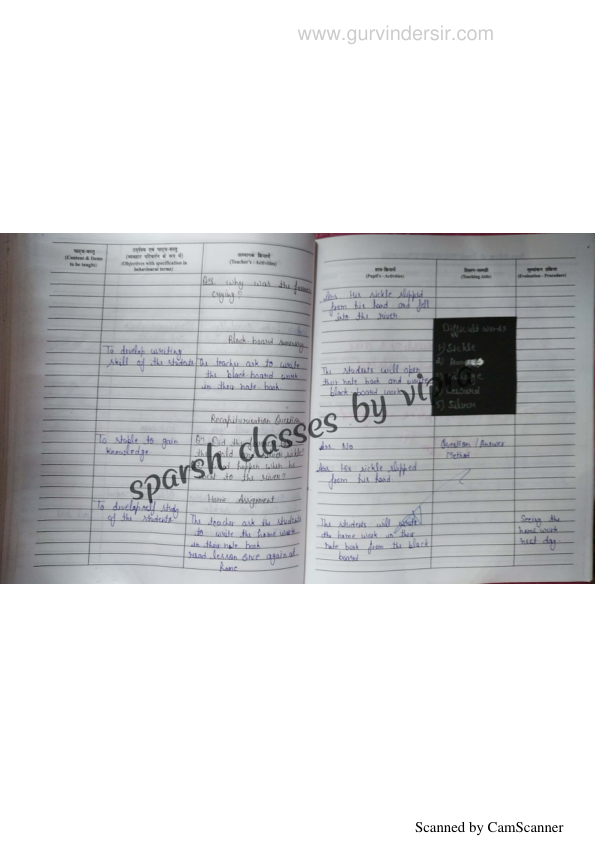 www.gurvindersir.com
पाठ्य-वस्तु
(Content & Items
to be taught)
उद्देश्य एवं पाठ्य-वस्तु
(व्यवहार परिवर्तन के रूप में)
(Objectives with specification in
behavioural terms)
अध्यापक क्रियाएँ
(Teacher's - Activities)
why was the
crying?
Black board summary
To develop writing
skill of the students
The teacher ask to write
the black board work
in their note book
Recapitulization Question
To stable to gain
knowledge
Did the
happen when he
to the river?
Home Assignment
To development study
of the students
The teacher ask the students
to write the home work
in their note book
read lesson once again at
home
छात्र-क्रियाएँ
(Pupil's - Activities)
शिक्षण-सामग्री
(Teaching Aids)
मूल्यांकन प्रक्रिया
(Evaluation - Procedure)
Ans His sickle slipped
from his hand and fell
into the river
Difficuld words
1) Sickle
2)
5) Silver
The students will open
their note book and write
black board work
Ans. No
Question / Answer
Method
Ans His sickle slipped
from his hand
The students will write
the home work in their
note book from the black
board
Seeing the
home work
next day
sparsh classes by vipra
Scanned by CamScanner